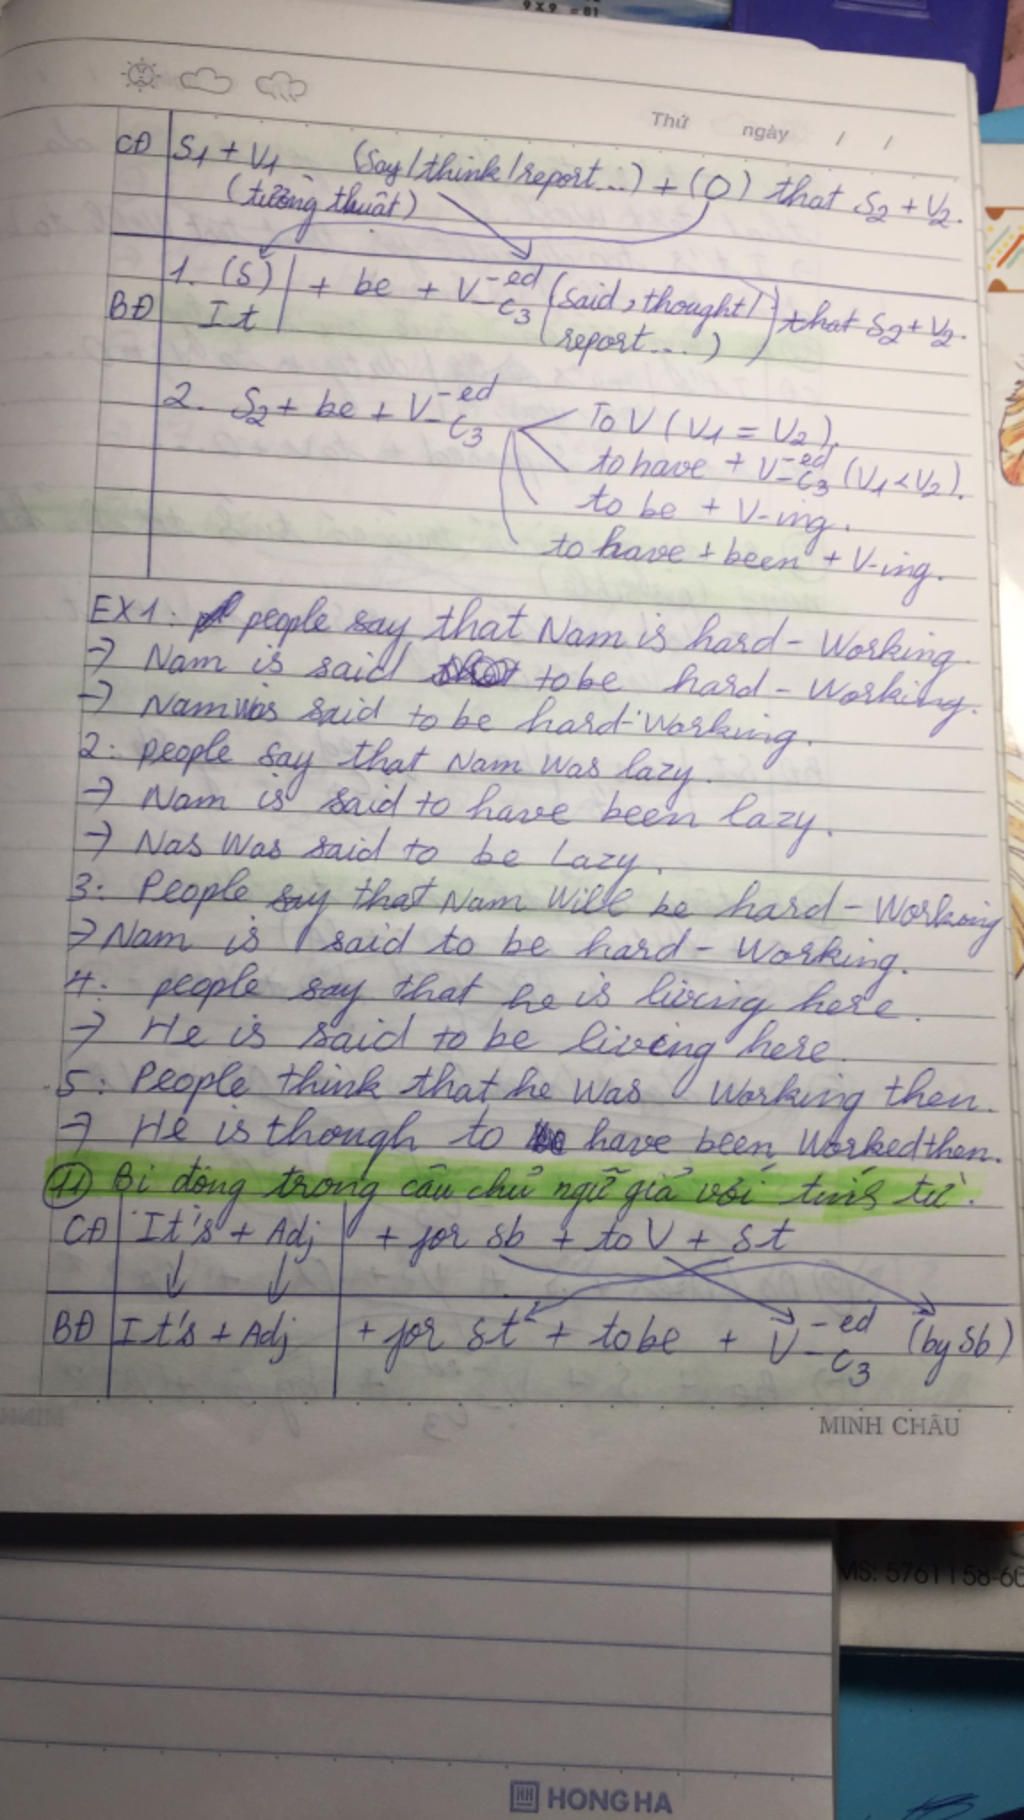 9 x 9 = 81
Thứ ngày / /
CĐ S1 + V1 (Say/think/report...) + (O) that S2 + V2.
(tường thuật)
BĐ 1. (S) + be + V-ed (said, thought/
It C3 report....) that S2 + V2.
2. S2 + be + V-ed To V (V1 = V2).
C3 to have + V-ed C3 (V1 < V2).
to be + V-ing.
to have + been + V-ing.
EX1: people say that Nam is hard - Working.
→ Nam is said to be hard - Working.
→ Nam was said to be hard-Working.
2: people say that Nam Was lazy.
→ Nam is said to have been lazy.
→ Nas Was said to be Lazy.
3: People say that Nam Will be hard - Working
→ Nam is said to be hard - Working.
4: people say that he is living here.
→ He is said to be living here.
5: People think that he Was Working then.
→ He is though to have been Worked then.
11) Bị động trong câu chủ ngữ giả với tính từ.
CĐ It's + Adj + for sb + to V + st
BĐ It's + Adj + for st + to be + V-ed C3 (by sb)
MINH CHÂU
MS: 5761158-60
HH HONG HA